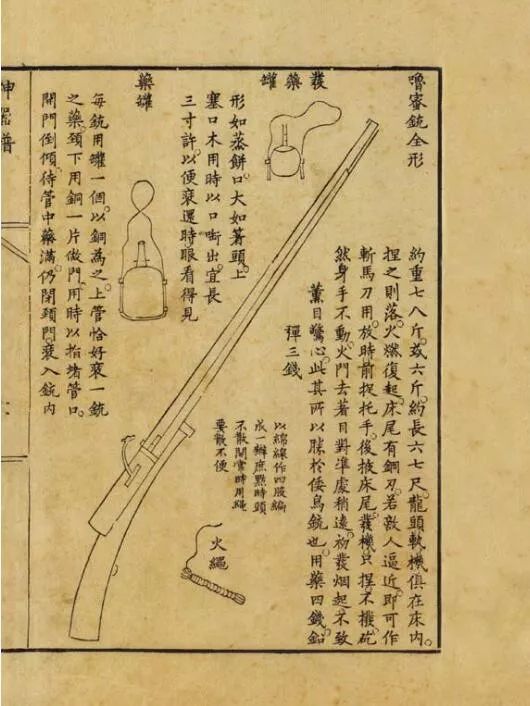 嚕密銃全形
約重七八斤。或六斤。約長六七尺。龍頭軌機俱在床內。
捏之則落。火燃復起。床尾有鋼刃。若敵人逼近。即可作
斬馬刀用。放時前捉托手。後掖床尾。發機只捏。不撥。砣
然身手不動。火門去著目對準處稍遠。初發烟起。不致
薰目驚心。此其所以勝於倭鳥銃也。用藥四錢。鉛
彈三錢
發藥罐
形如蒸餅。口大如箸頭。上
塞口木。用時以口啣出。宜長
三寸許。以便裝還時眼看得見
火繩
以綿線作四股編
成一辮。庶點時頭
不散開。當時用繩
要散不便
藥罐
每銃用罐一個。以銅為之。上管恰好裝一銃
之藥。頸下用銅一片做門。用時以指堵管口。
開門倒傾。待管中藥滿。仍閉頸門。裝入銃內
神器譜